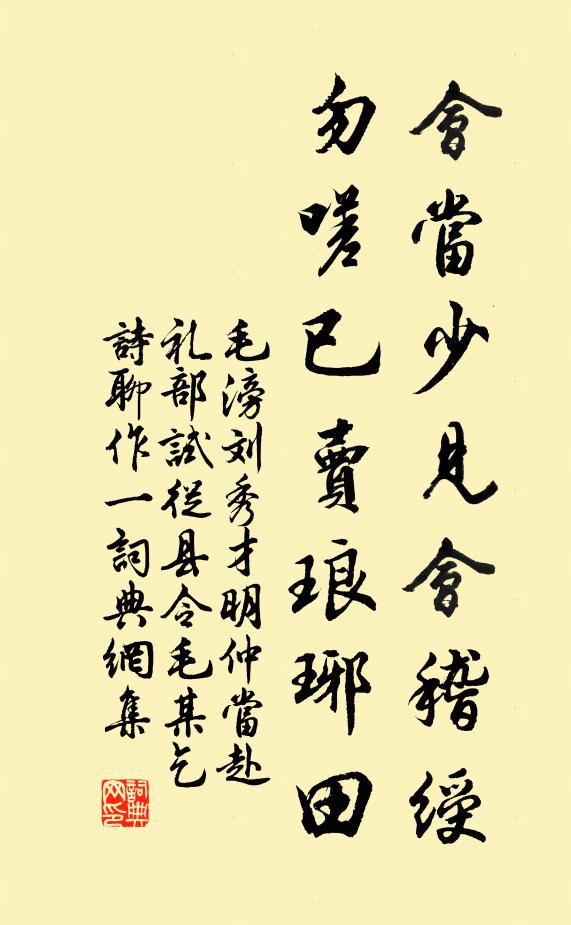 會當少見會稽綬
勿嗟已賣琅琊田
毛滂刘秀才明仲當赴
礼部試從县令毛某乞
詩聊作一詞典網集
詞典网印